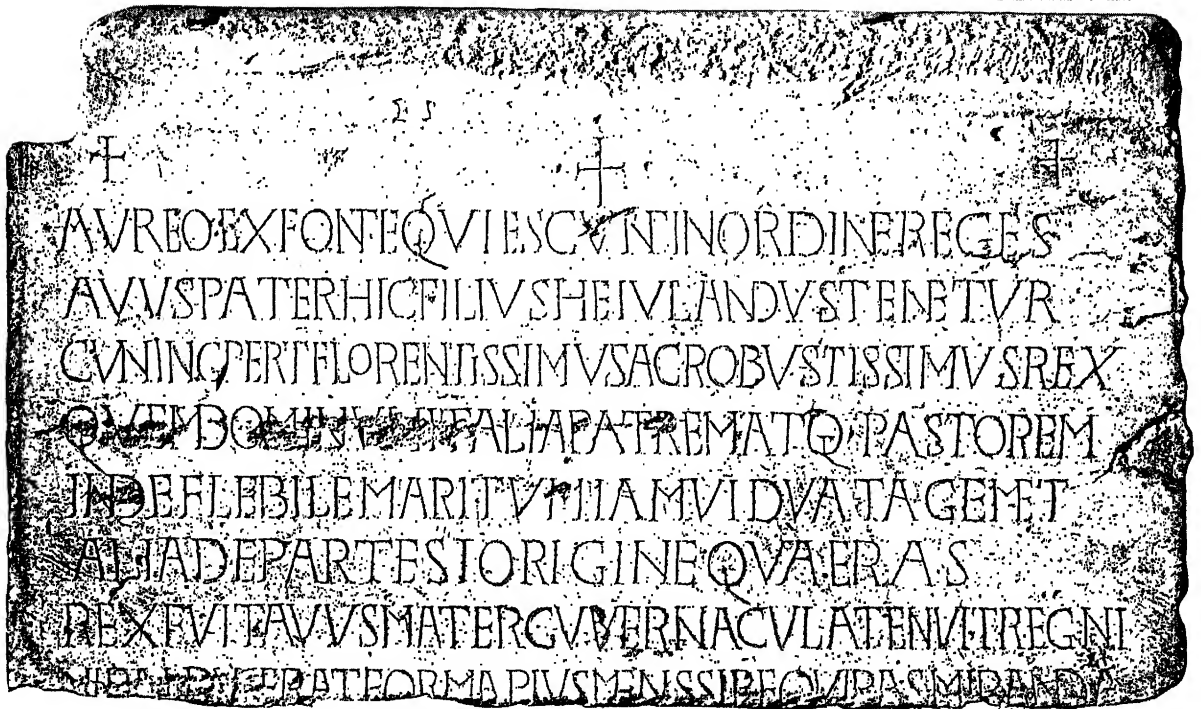 AVREOEXFONTEQVIESCVNTINORDINEREGES
AVVSPATERHICFILIVSHEIVLANDVSTENETVR
CVNINCPERTFLORENTISSIMVSACROBVSTISSIMVSREX
QVEMDOMINVMITALIAPATREMATQ·PASTOREM
INDEFLEBILEMARITVMIAMVIDVATAGEMET
ALIADEPARTESIORIGINEQVAERAS
REXFVITAVVSMATERGVVERNACVLATENVITREGNI
ERATFORMAPIVSMENSSIREQVIRASMIRANDA